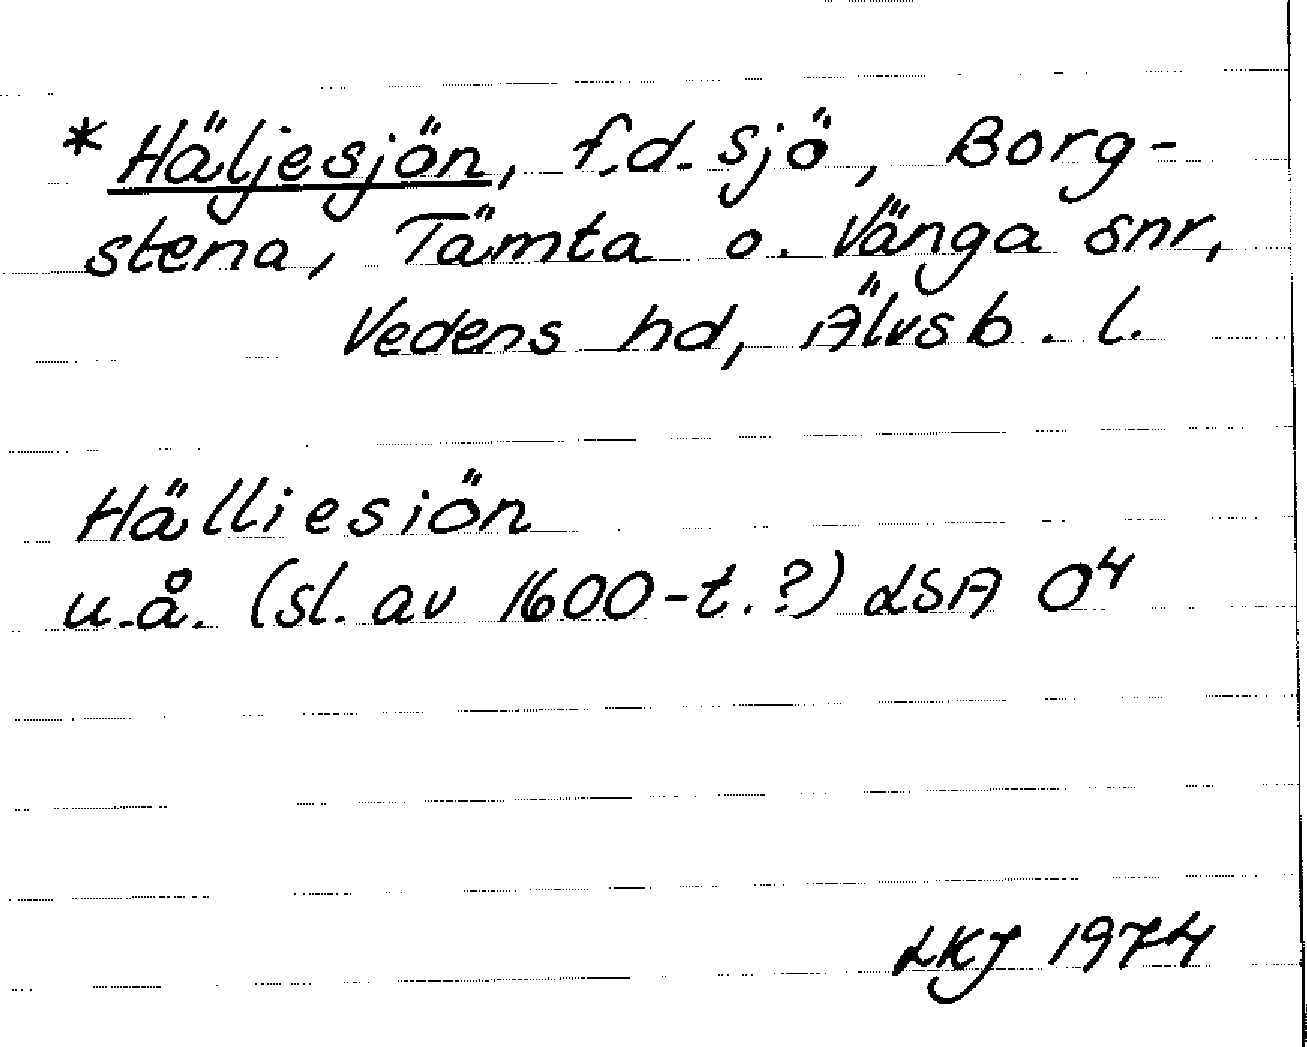 * Häljesjön, f.d. sjö, Borg-
stena, Tämta o. Vänga snr,
Vedens hd, Älvsb. l.
Hälliesiön
u.å. (sl. av 1600-t.?) LSA O4
LKJ 1974